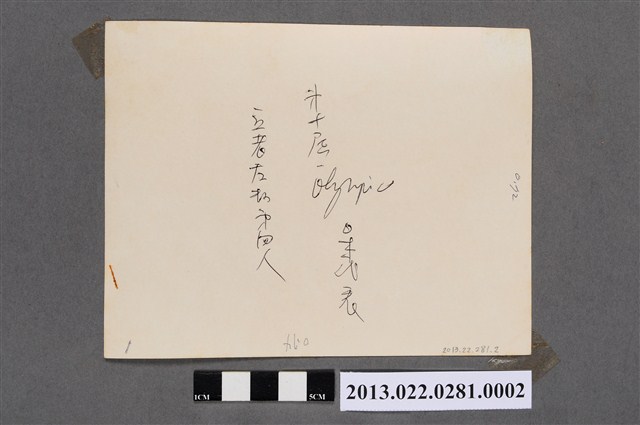 第十屆
Olympic
日本代表
立者左起第四人
2013.22.281.2
1CM
5CM
2013.022.0281.0002